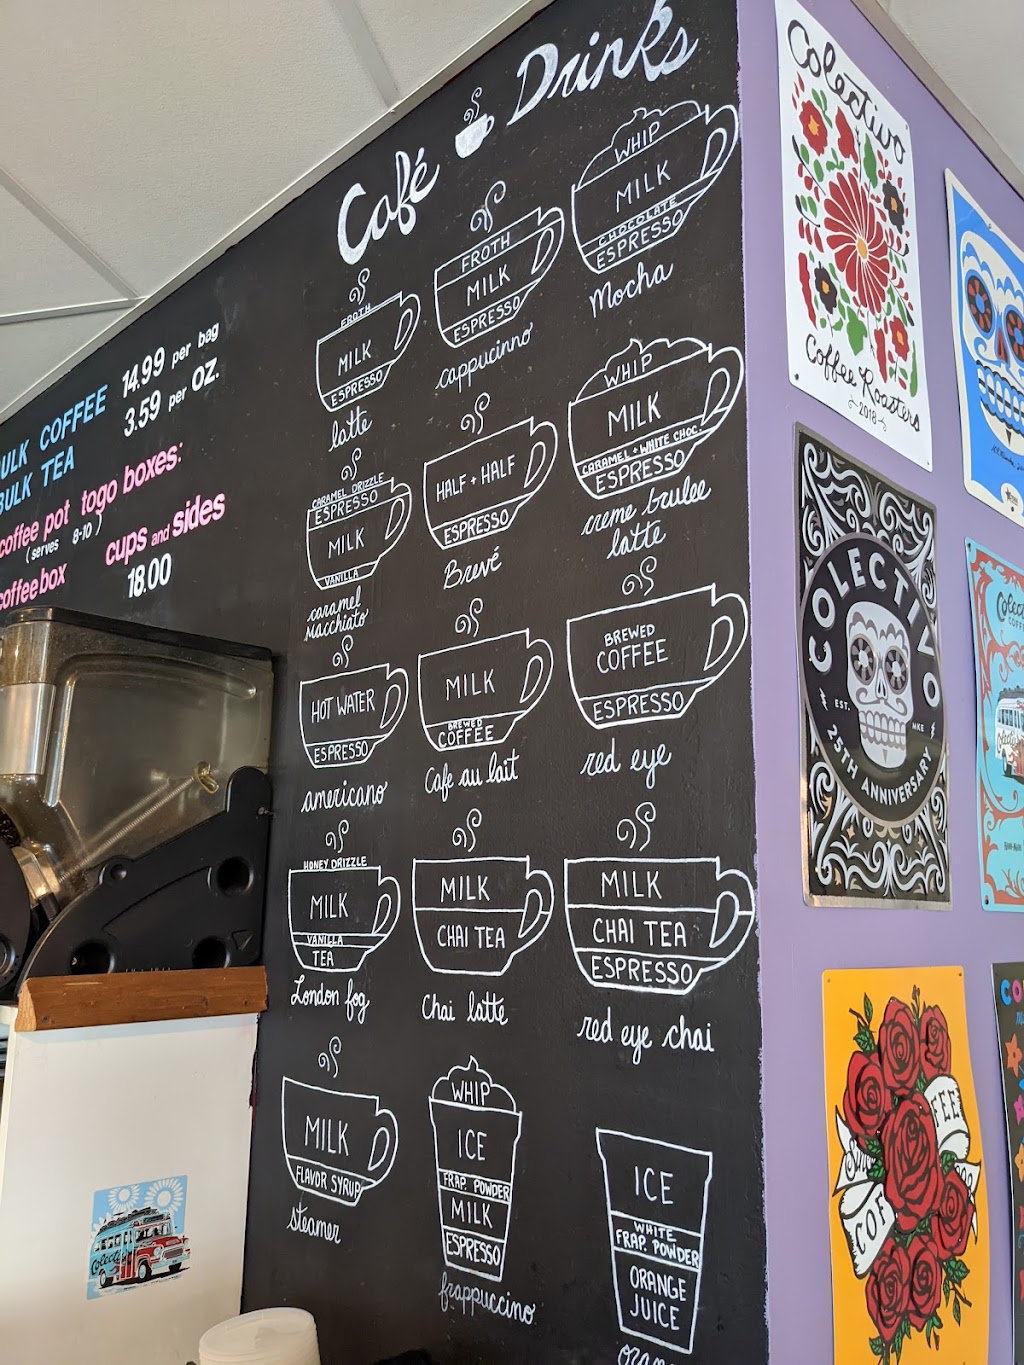 Café Drinks
BULK COFFEE 14.99 per bag
BULK TEA 3.59 per oz.
coffee pot togo boxes:
(serves 8-10)
coffee box
cups and sides
18.00
FROTH
MILK
ESPRESSO
latte
FROTH
MILK
ESPRESSO
cappucinno
WHIP
MILK
CHOCOLATE
ESPRESSO
Mocha
CARAMEL DRIZZLE
ESPRESSO
MILK
VANILLA
caramel
macchiato
HALF + HALF
ESPRESSO
Brevé
WHIP
MILK
CARAMEL + WHITE CHOC.
ESPRESSO
creme brulee
latte
HOT WATER
ESPRESSO
americano
MILK
BREWED
COFFEE
Cafe au lait
BREWED
COFFEE
ESPRESSO
red eye
HONEY DRIZZLE
MILK
VANILLA
TEA
London fog
MILK
CHAI TEA
Chai latte
MILK
CHAI TEA
ESPRESSO
red eye chai
MILK
FLAVOR SYRUP
steamer
WHIP
ICE
FRAP. POWDER
MILK
ESPRESSO
frappuccino
ICE
WHITE
FRAP. POWDER
ORANGE
JUICE
Colectivo
Coffee Roasters
2018
COLECTIVO
EST. MKE
25TH ANNIVERSARY
Colectivo